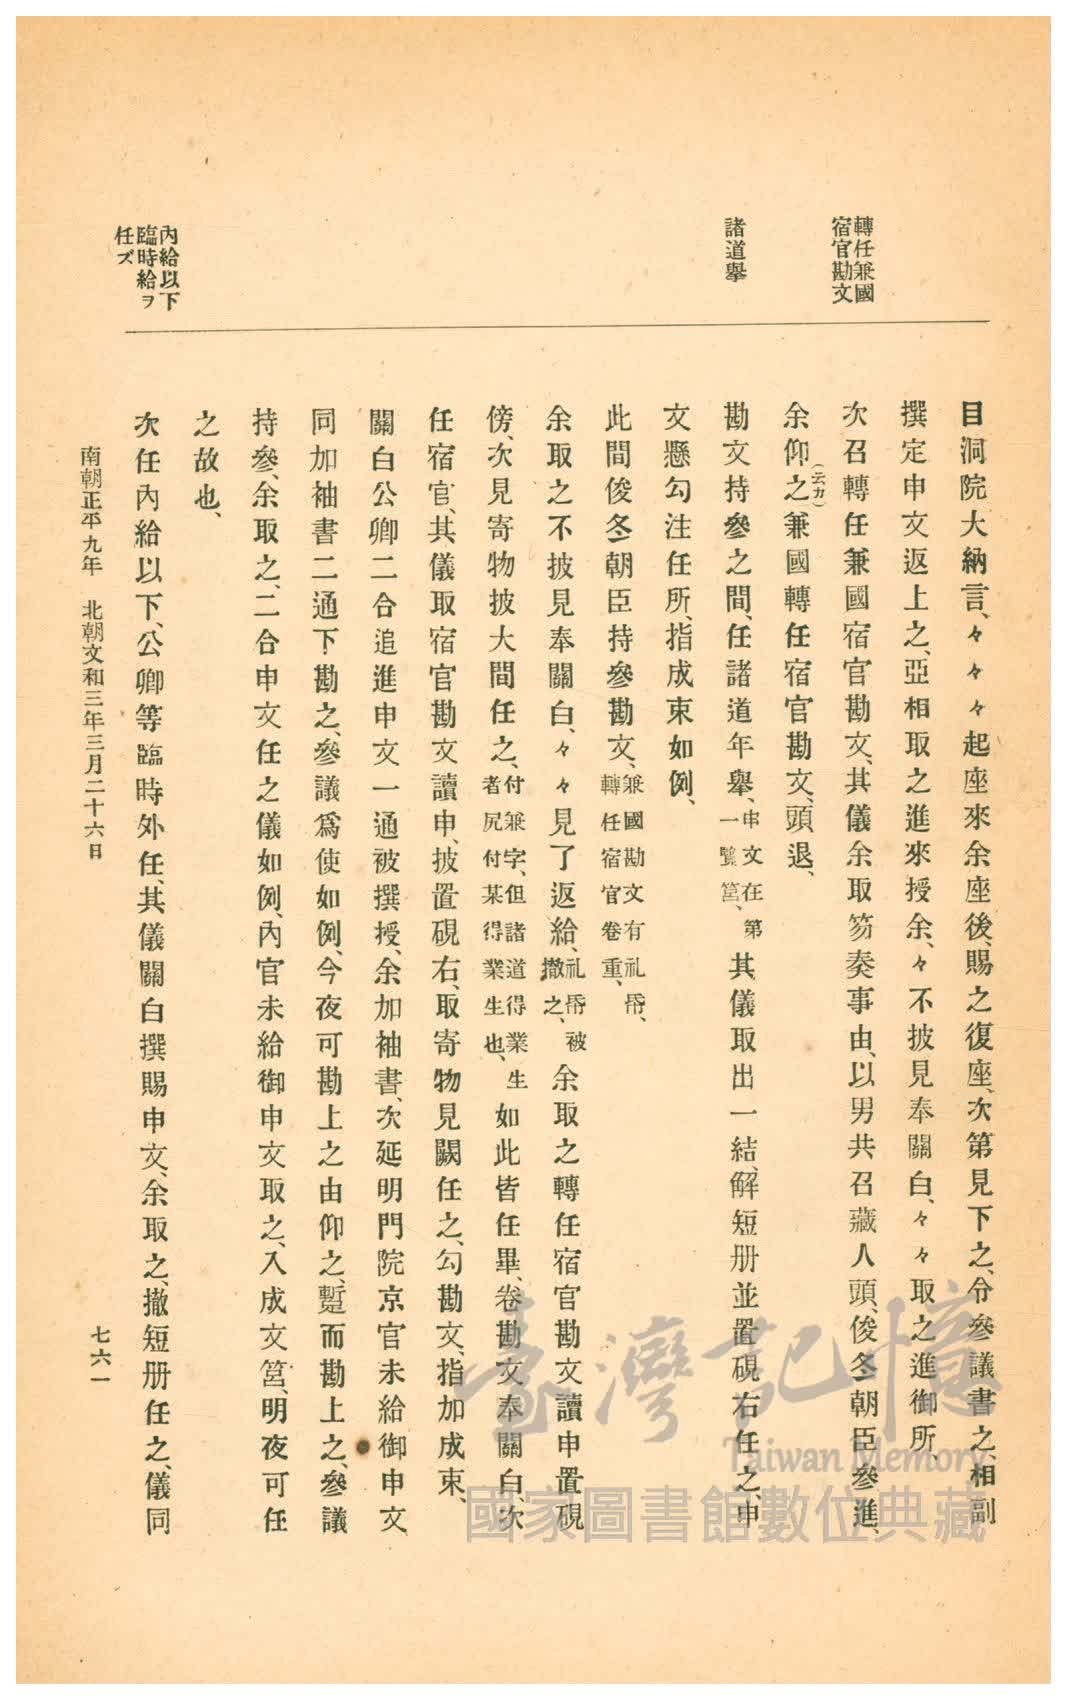 轉任兼國
宿官勘文
諸道擧
內給以下
臨時給ヲ
任ズ
目洞院大納言、々々々起座來余座後、賜之復座、次第見下之、令參議書之、相副
撰定申文返上之、亞相取之進來授余、々不披見奉關白、々々取之進御所、
次召轉任兼國宿官勘文、其儀余取笏奏事由、以男共召藏人頭、俊冬朝臣參進、
余仰之(云カ)兼國轉任宿官勘文、頭退、
勘文持參之間、任諸道年擧、申文在第一覽筥、其儀取出一結、解短册並置硯右任之、申
文懸勾注任所、指成束如例、
此間俊冬朝臣持參勘文、兼國勘文有礼帋、轉任宿官卷重、
余取之不披見奉關白、々々見了返給、礼帋被撤之、余取之轉任宿官勘文讀申置硯
傍、次見寄物披大間任之、付兼字、但諸道得業生者尻付某得業生也、如此皆任畢、卷勘文奉關白、次
任宿官、其儀取宿官勘文讀申、披置硯右、取寄物見闕任之、勾勘文、指加成束、
關白公卿二合追進申文一通被撰授、余加袖書、次延明門院京官未給御申文
同加袖書二通下勘之、參議爲使如例、今夜可勘上之由仰之、蹔而勘上之、參議
持參、余取之、二合申文任之儀如例、內官未給御申文取之、入成文筥、明夜可任
之故也、
次任內給以下、公卿等臨時外任、其儀關白撰賜申文、余取之、撤短册任之、儀同
南朝正平九年　北朝文和三年三月二十六日
七六一
臺灣記憶
Taiwan Memory
國家圖書館數位典藏